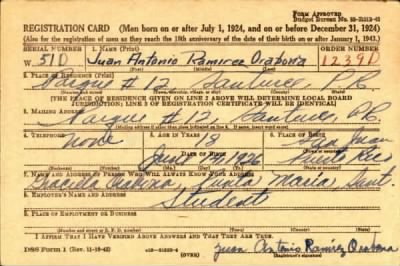 FORM APPROVED
Budget Bureau No.
REGISTRATION CARD (Men born on or after July 1, 1924, and on or before December 31, 1924)
(Also for the registration of men as they reach the 18th anniversary of the date of their birth on or after January 1, 1943.)
SERIAL NUMBER 1. NAME (Print) ORDER NUMBER
W 51D Juan Antonio Ramirez Orabona 1239D
(First) (Middle) (Last)
2. PLACE OF RESIDENCE (Print)
Parque #12, Santurce, P.R.
(Number and street) (Town, township, village, or city) (County) (State)
[THE PLACE OF RESIDENCE GIVEN ON LINE 2 ABOVE WILL DETERMINE LOCAL BOARD
JURISDICTION; LINE 2 OF REGISTRATION CERTIFICATE WILL BE IDENTICAL]
3. MAILING ADDRESS
Parque #12, Santurce, P.R.
(Mailing address if other than place indicated on line 2. If same, insert word same)
4. TELEPHONE 5. AGE IN YEARS 6. PLACE OF BIRTH
None 18 San Juan
DATE OF BIRTH
1926 Puerto Rico
7. NAME AND ADDRESS OF PERSON WHO WILL ALWAYS KNOW YOUR ADDRESS
Punta
8. EMPLOYER'S NAME AND ADDRESS
Student
9. PLACE OF EMPLOYMENT OR BUSINESS
(Number and street or R. F. D. number) (Town) (County) (State)
I AFFIRM THAT I HAVE VERIFIED ABOVE ANSWERS AND THAT THEY ARE TRUE.
DSS Form 1 (Rev. 11-16-42) (OVER) Juan Antonio Ramirez Orabona
(Registrant's signature)